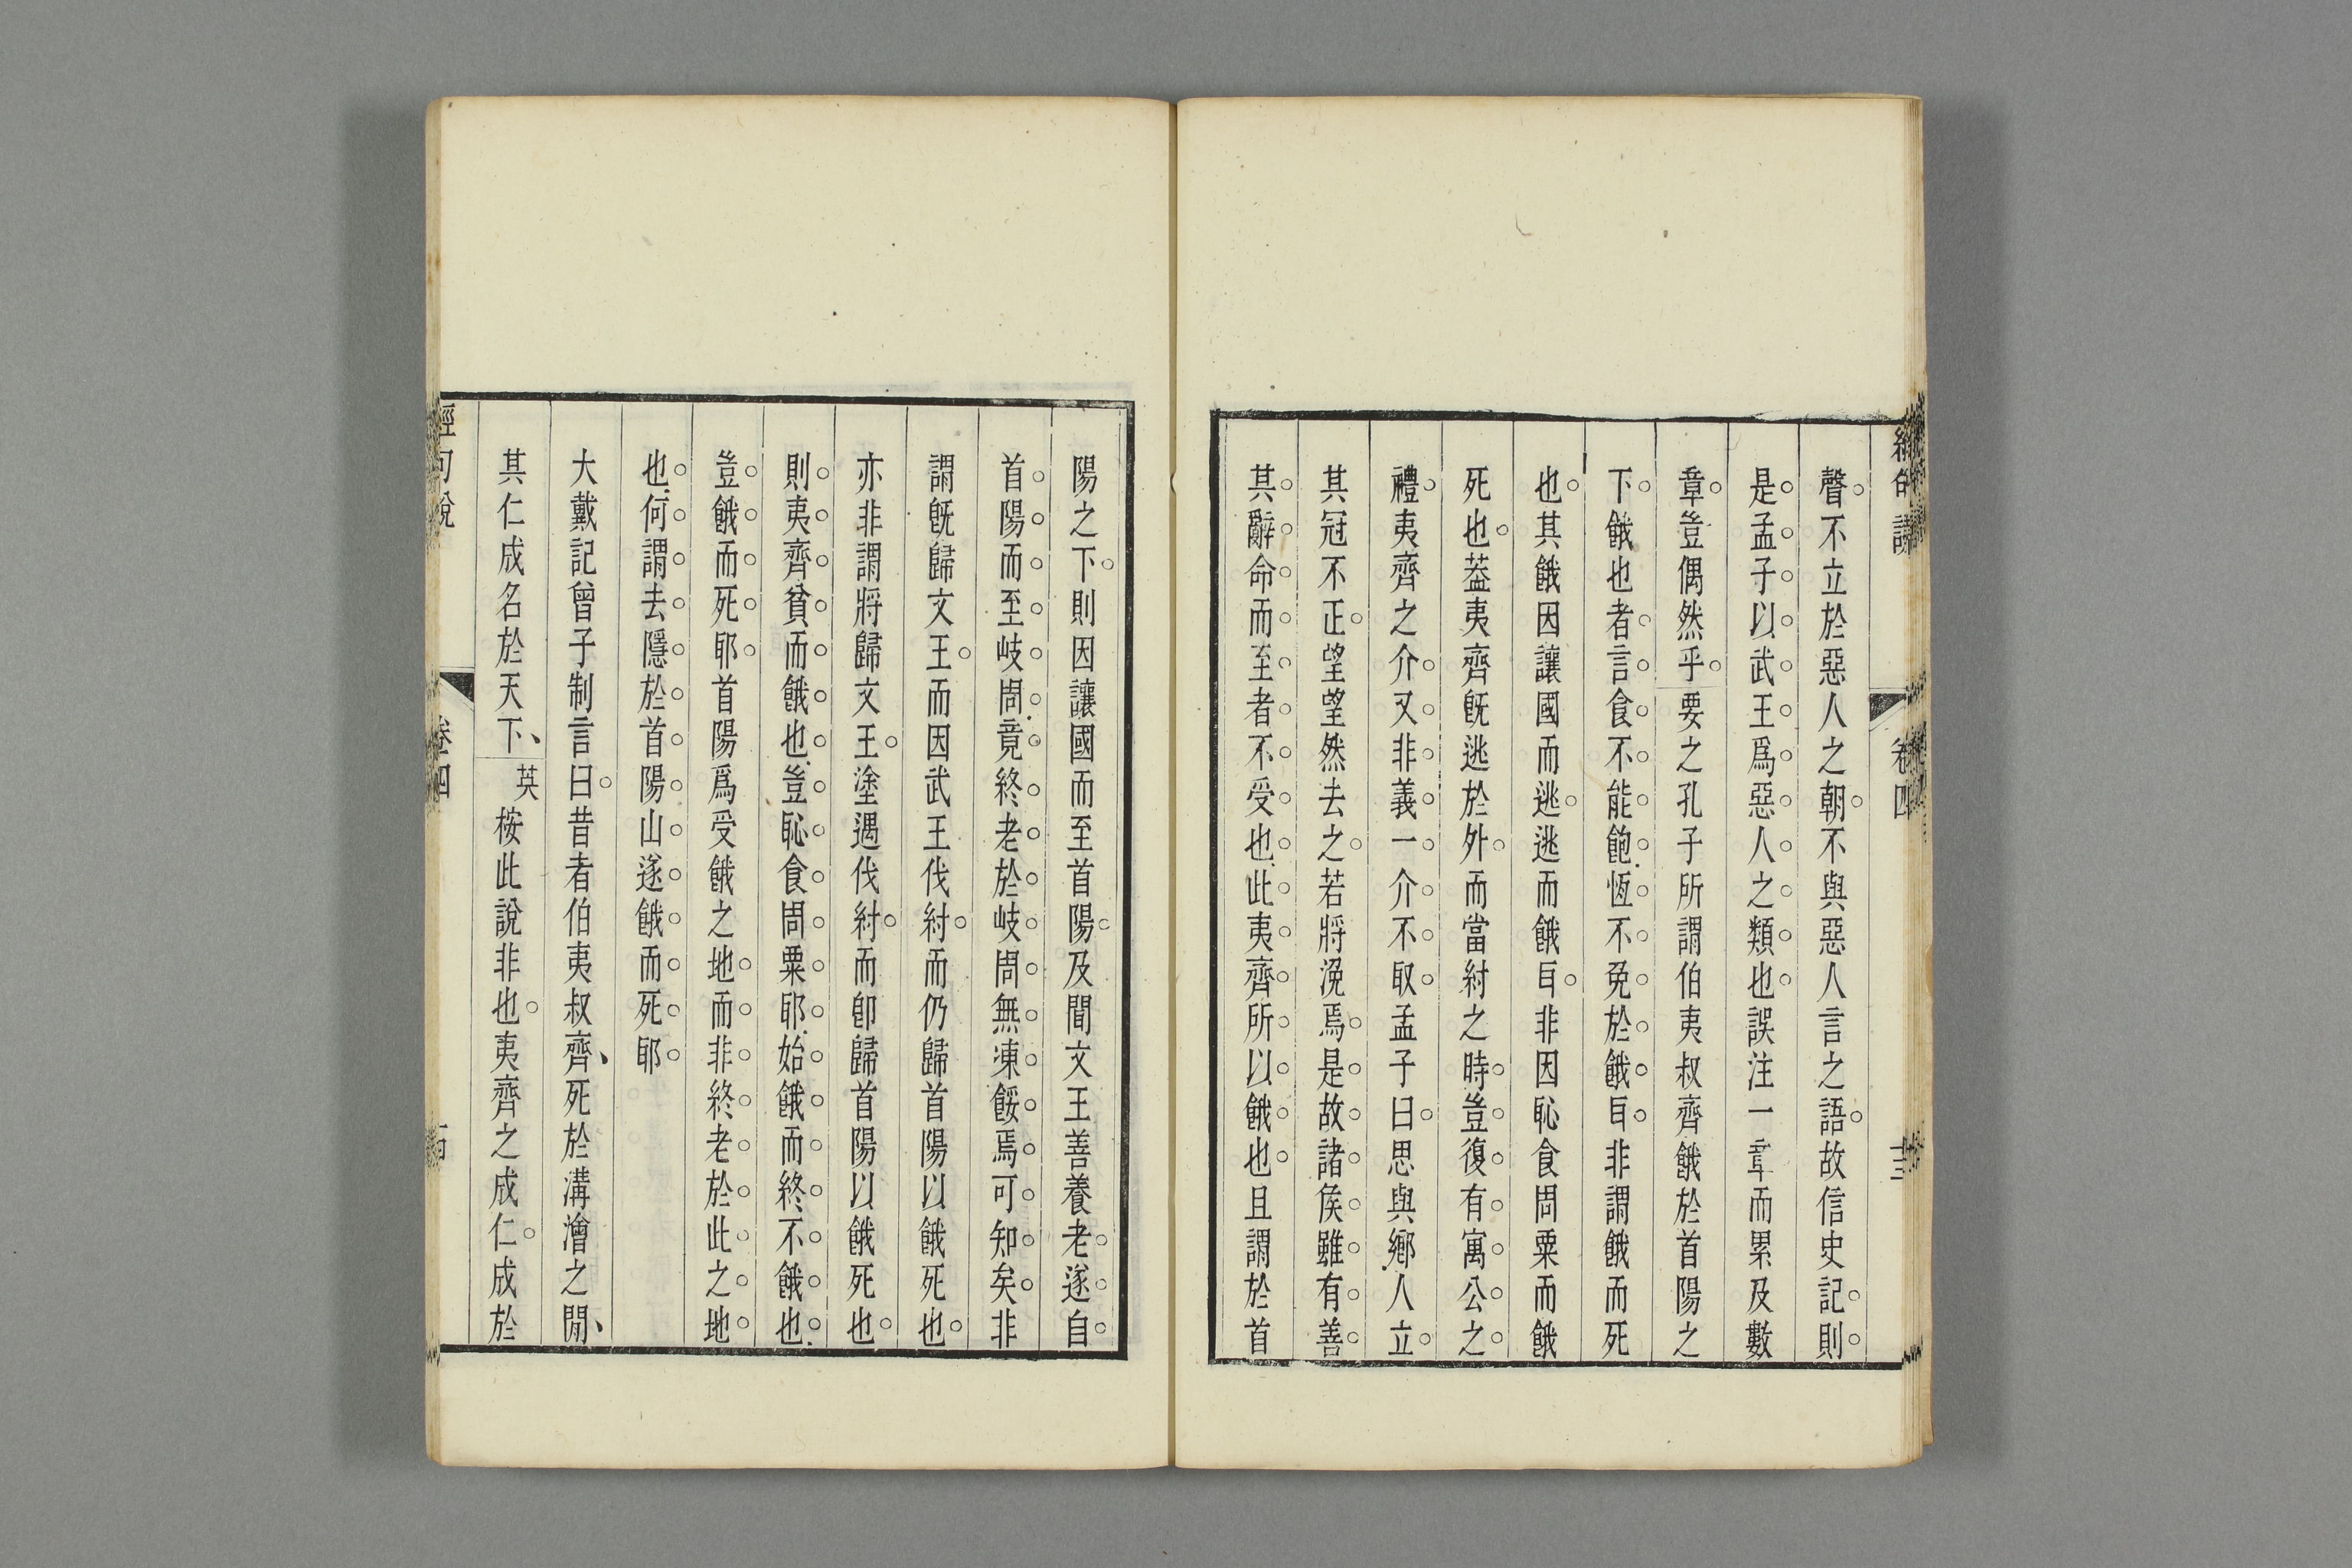 卷四
聲不立於惡人之朝不與惡人言之語故信史記則
是孟子以武王爲惡人之類也誤注一章而累及數
章豈偶然乎要之孔子所謂伯夷叔齊餓於首陽之
下餓也者言食不能飽恆不免於餓耳非謂餓而死
也其餓因讓國而逃逃而餓耳非因恥食周粟而餓
死也葢夷齊旣逃於外而當紂之時豈復有寓公之
禮夷齊之介又非義一介不取孟子曰思與鄉人立
其冠不正望望然去之若將浼焉是故諸侯雖有善
其辭命而至者不受也此夷齊所以餓也且謂於首
陽之下則因讓國而至首陽及聞文王善養老遂自
首陽而至岐周竟終老於岐周無凍餒焉可知矣非
謂旣歸文王而因武王伐紂而仍歸首陽以餓死也
亦非謂將歸文王塗遇伐紂而卽歸首陽以餓死也
則夷齊貧而餓也豈恥食周粟耶始餓而終不餓也
豈餓而死耶首陽爲受餓之地而非終老於此之地
也何謂去隱於首陽山遂餓而死耶
大戴記曾子制言曰昔者伯夷叔齊死於溝澮之閒
其仁成名於天下英桉此說非也夷齊之成仁成於
卷四